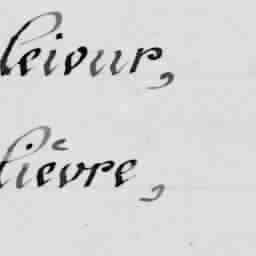 leiour,
lièvre,